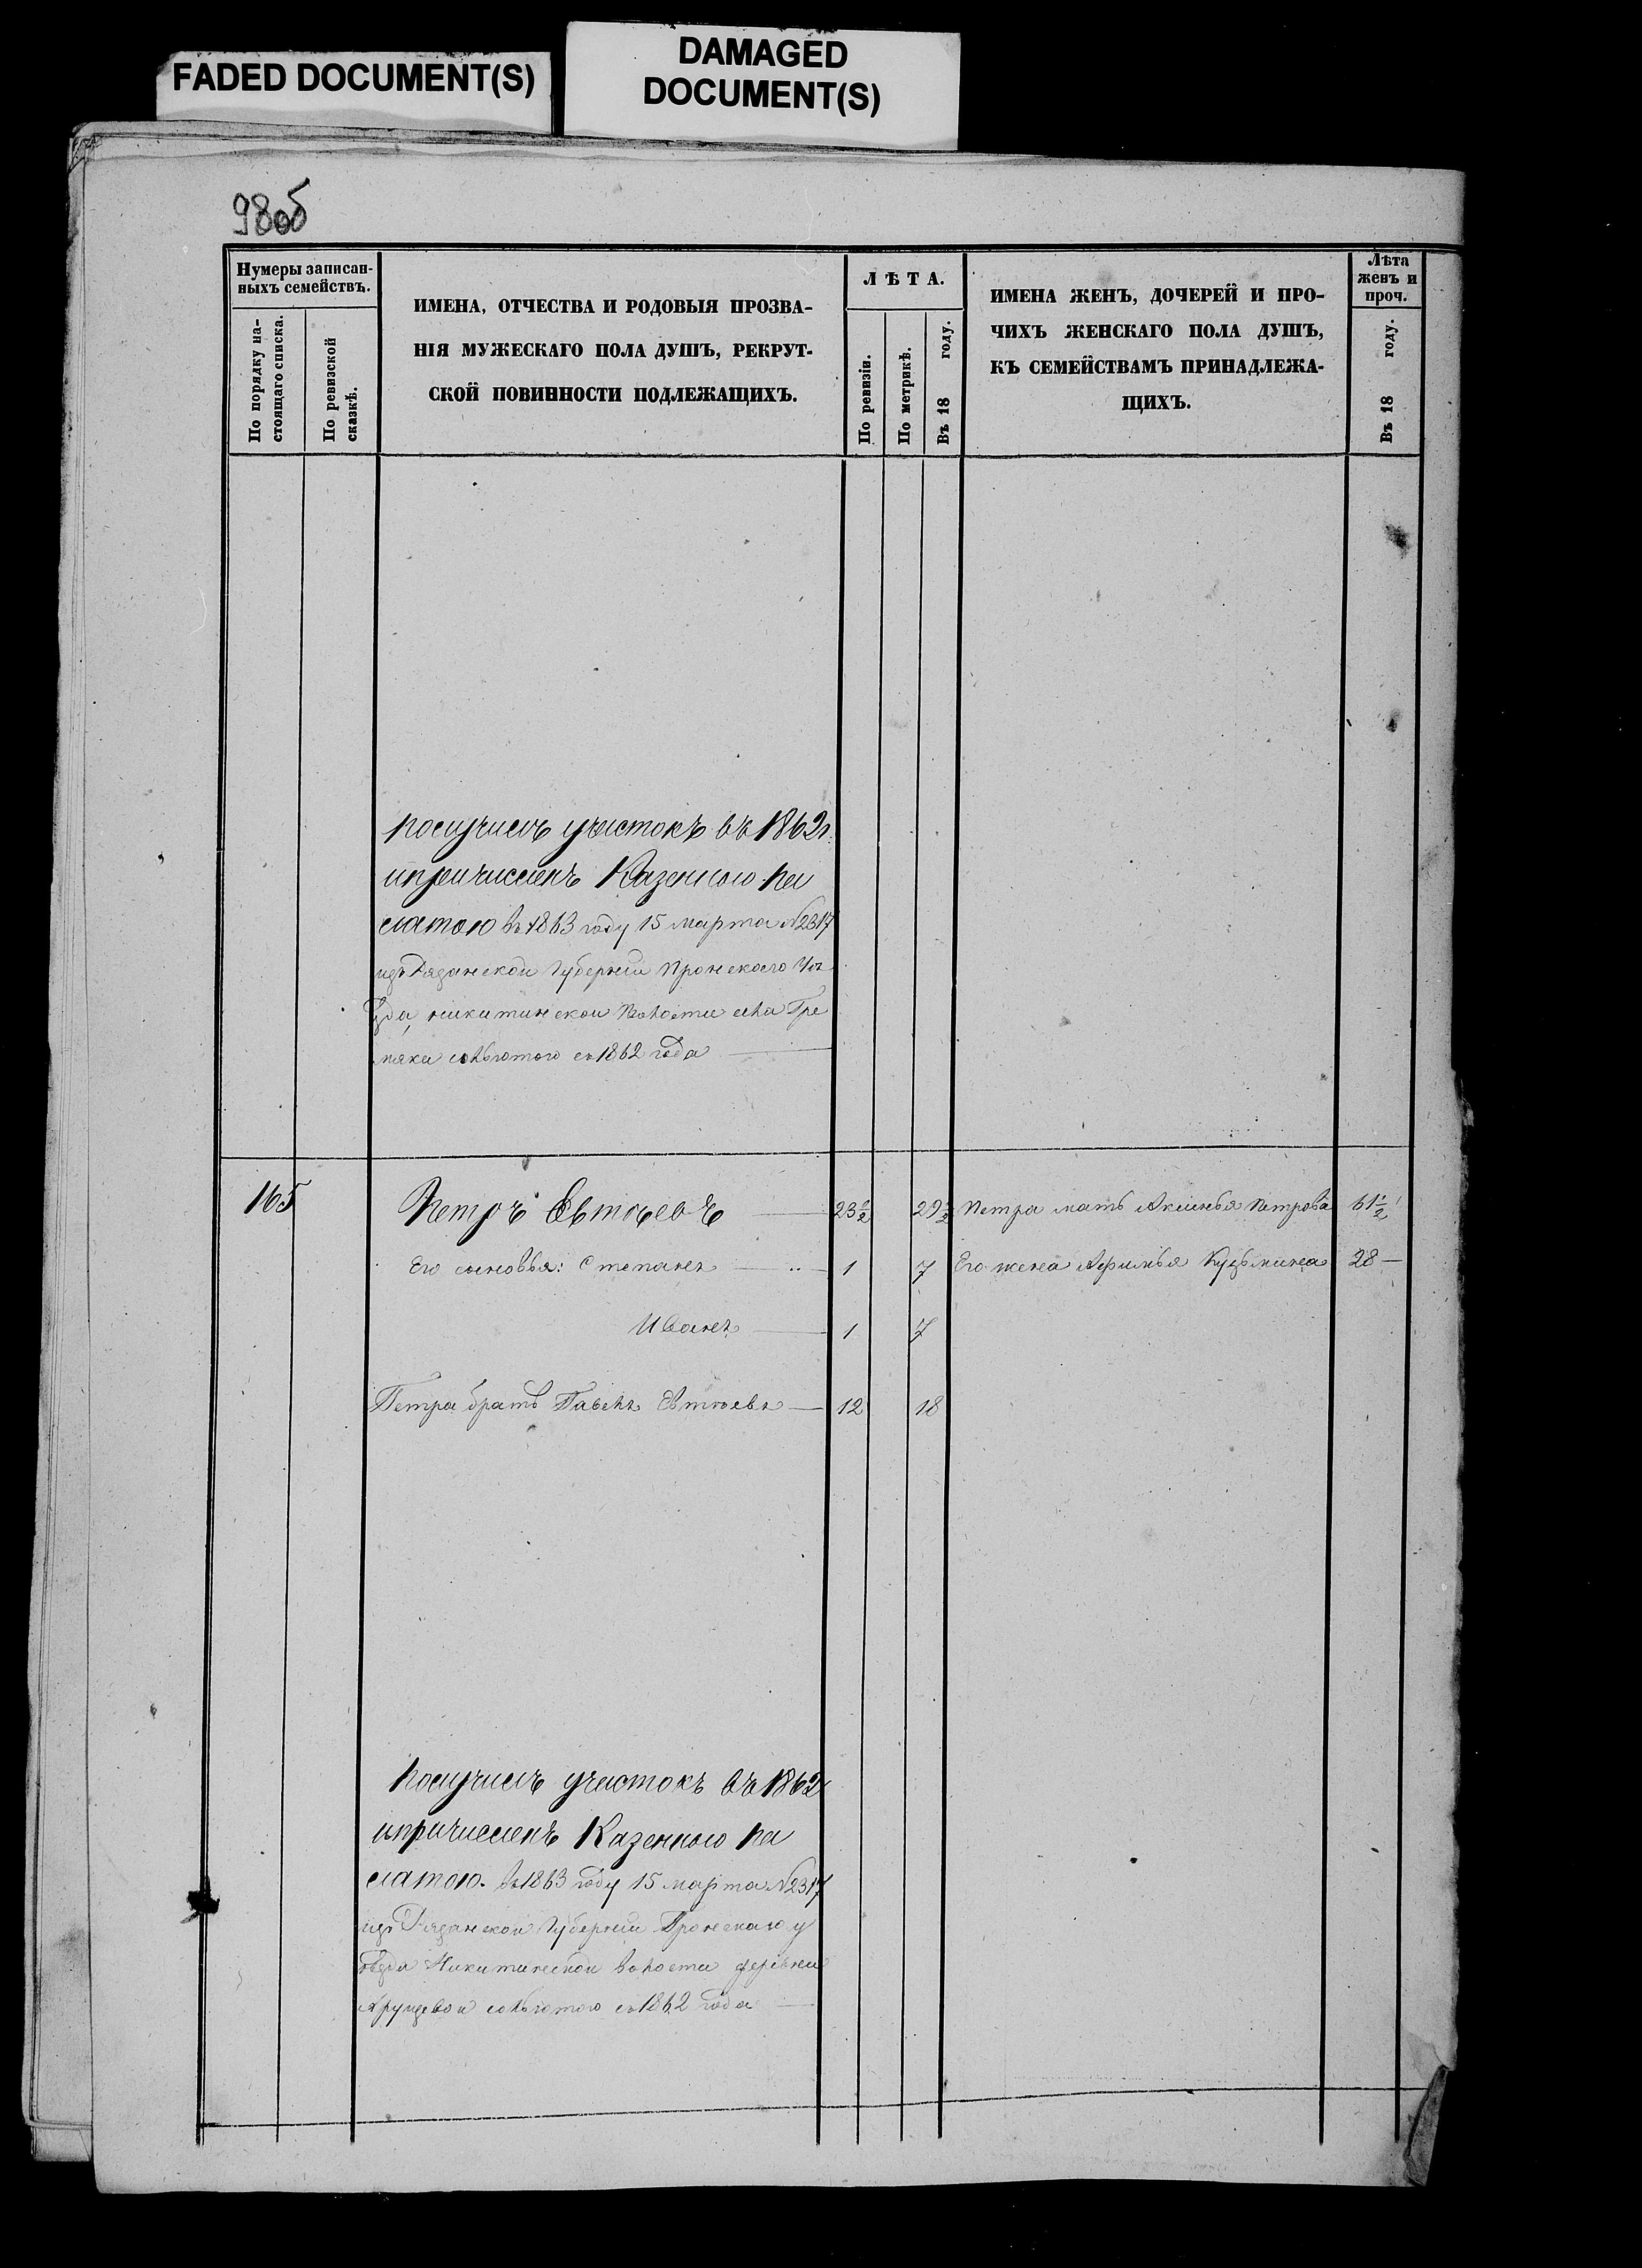 FADED DOCUMENT(S)
DAMAGED
DOCUMENT(S)
98об
Нумеры записан-
ныхъ семействъ.
По порядку на-
стоящаго списка.
По ревизской
сказкѣ.
ИМЕНА, ОТЧЕСТВА И РОДОВЫЯ ПРОЗВА-
НІЯ МУЖЕСКАГО ПОЛА ДУШЪ, РЕКРУТ-
СКОЙ ПОВИННОСТИ ПОДЛЕЖАЩИХЪ.
ЛѢТА.
По ревизіи.
По метрикѣ.
Въ 18 году.
ИМЕНА ЖЕНЪ, ДОЧЕРЕЙ И ПРО-
ЧИХЪ ЖЕНСКАГО ПОЛА ДУШЪ,
КЪ СЕМЕЙСТВАМЪ ПРИНАДЛЕЖА-
ЩИХЪ.
Лѣта
женъ и
проч.
Въ 18 году.
получилъ участокъ въ 1862г.
ипричисленъ Казенною па
латою въ 1863 году 15 марта №2317
изъ Рязанской Губерніи Пронскаго Уѣ
зда, никитинской волости села Гре
мяки сольготою съ 1862 года
165 Петръ Евтѣевъ 23½ 29½ Петра мать Аксинья Петрова 61½
Его сыновья: Степанъ 1 7 Его жена Афимья Кузьмина 28
Иванъ 1 7
Петра братъ Павелъ Евтѣевъ 12 18
Получилъ участокъ въ 1862
ипричисленъ Казенною па
латою. въ 1863 году 15 марта №2317
изъ Рязанской Губерніи Пронскаго у
ѣзда Никитинской волости деревни
сольготою съ 1862 года